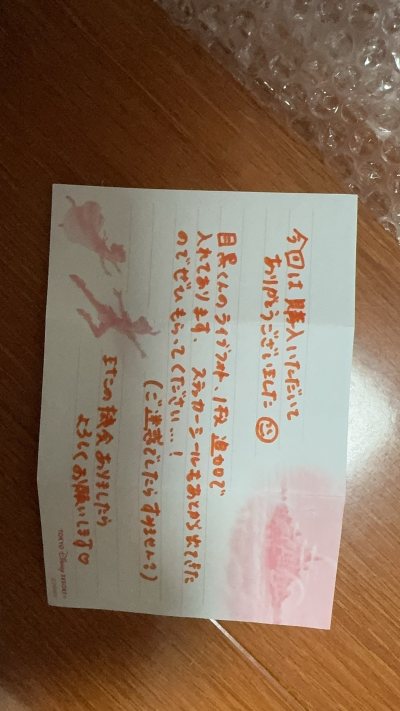 今回は購入いただいて
ありがとうございました
目黒くんのライブフォト、1枚追加で
入れております。ステッカーシールもあとから出てきた
のでぜひもらってください…！
(ご迷惑でしたらすいません💦)
またこの機会ありましたら
よろしくお願いします♡
TOKYO Disney RESORT
©Disney